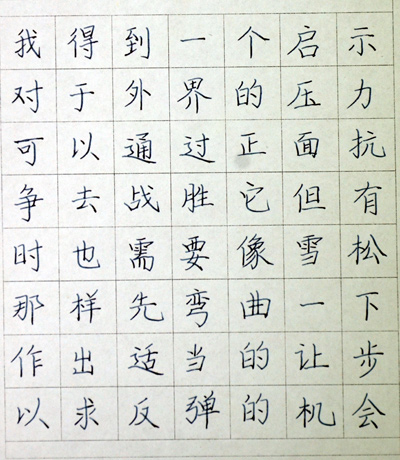 我得到一个启示
对于外界的压力
可以通过正面抗
争去战胜它但有
时也需要像雪松
那样先弯曲一下
作出适当的让步
以求反弹的机会